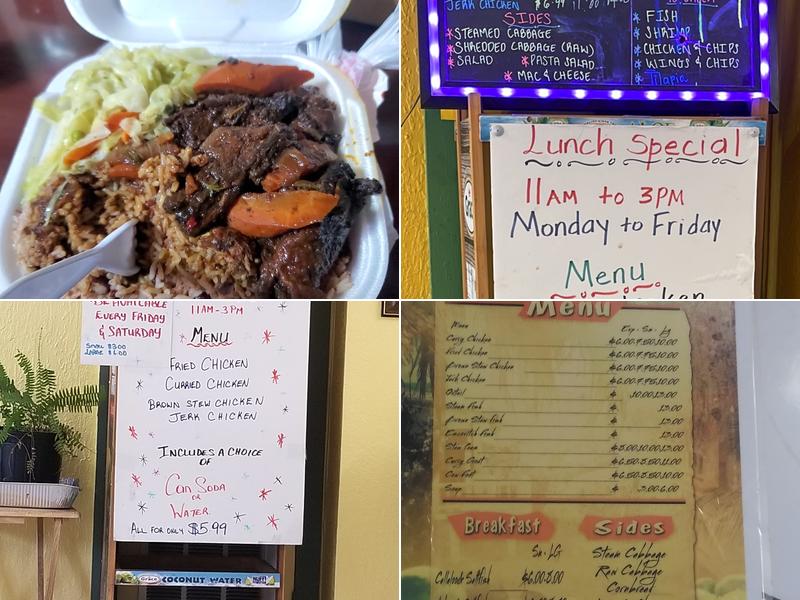 JERK CHICKEN
SIDES
* STEAMED CABBAGE
* SHREDDED CABBAGE (RAW)
* SALAD * PASTA SALAD
* MAC & CHEESE
* FISH
* SHRIMP
* CHICKEN & CHIPS
* WINGS & CHIPS
* Tilapia
Lunch Special
11AM to 3PM
Monday to Friday
Menu
BE AVAILABLE
EVERY FRIDAY
& SATURDAY
SMALL $3.00
LARGE $6.00
11AM-3PM
MENU
FRIED CHICKEN
CURRIED CHICKEN
BROWN STEW CHICKEN
JERK CHICKEN
INCLUDES A CHOICE
OF
CAN SODA
OR
WATER
ALL FOR ONLY $5.99
Grace COCONUT WATER
Menu
Menu
Curry Chicken $6.00.7.95.10.00
Fried Chicken $6.00.7.95.10.00
Brown Stew Chicken $6.00.7.95.10.00
Jerk Chicken $6.00.7.95.10.00
Oxtail $ 10.00.13.00
Steam Fish $ 13.00
Brown Stew Fish $ 13.00
Escovitch Fish $ 13.00
Stew Peas
Curry Goat
Cow Foot
Soup $ 3.00.6.00
Breakfast
Sm. LG
Sides
Steam Cabbage
Raw Cabbage
Cornbread